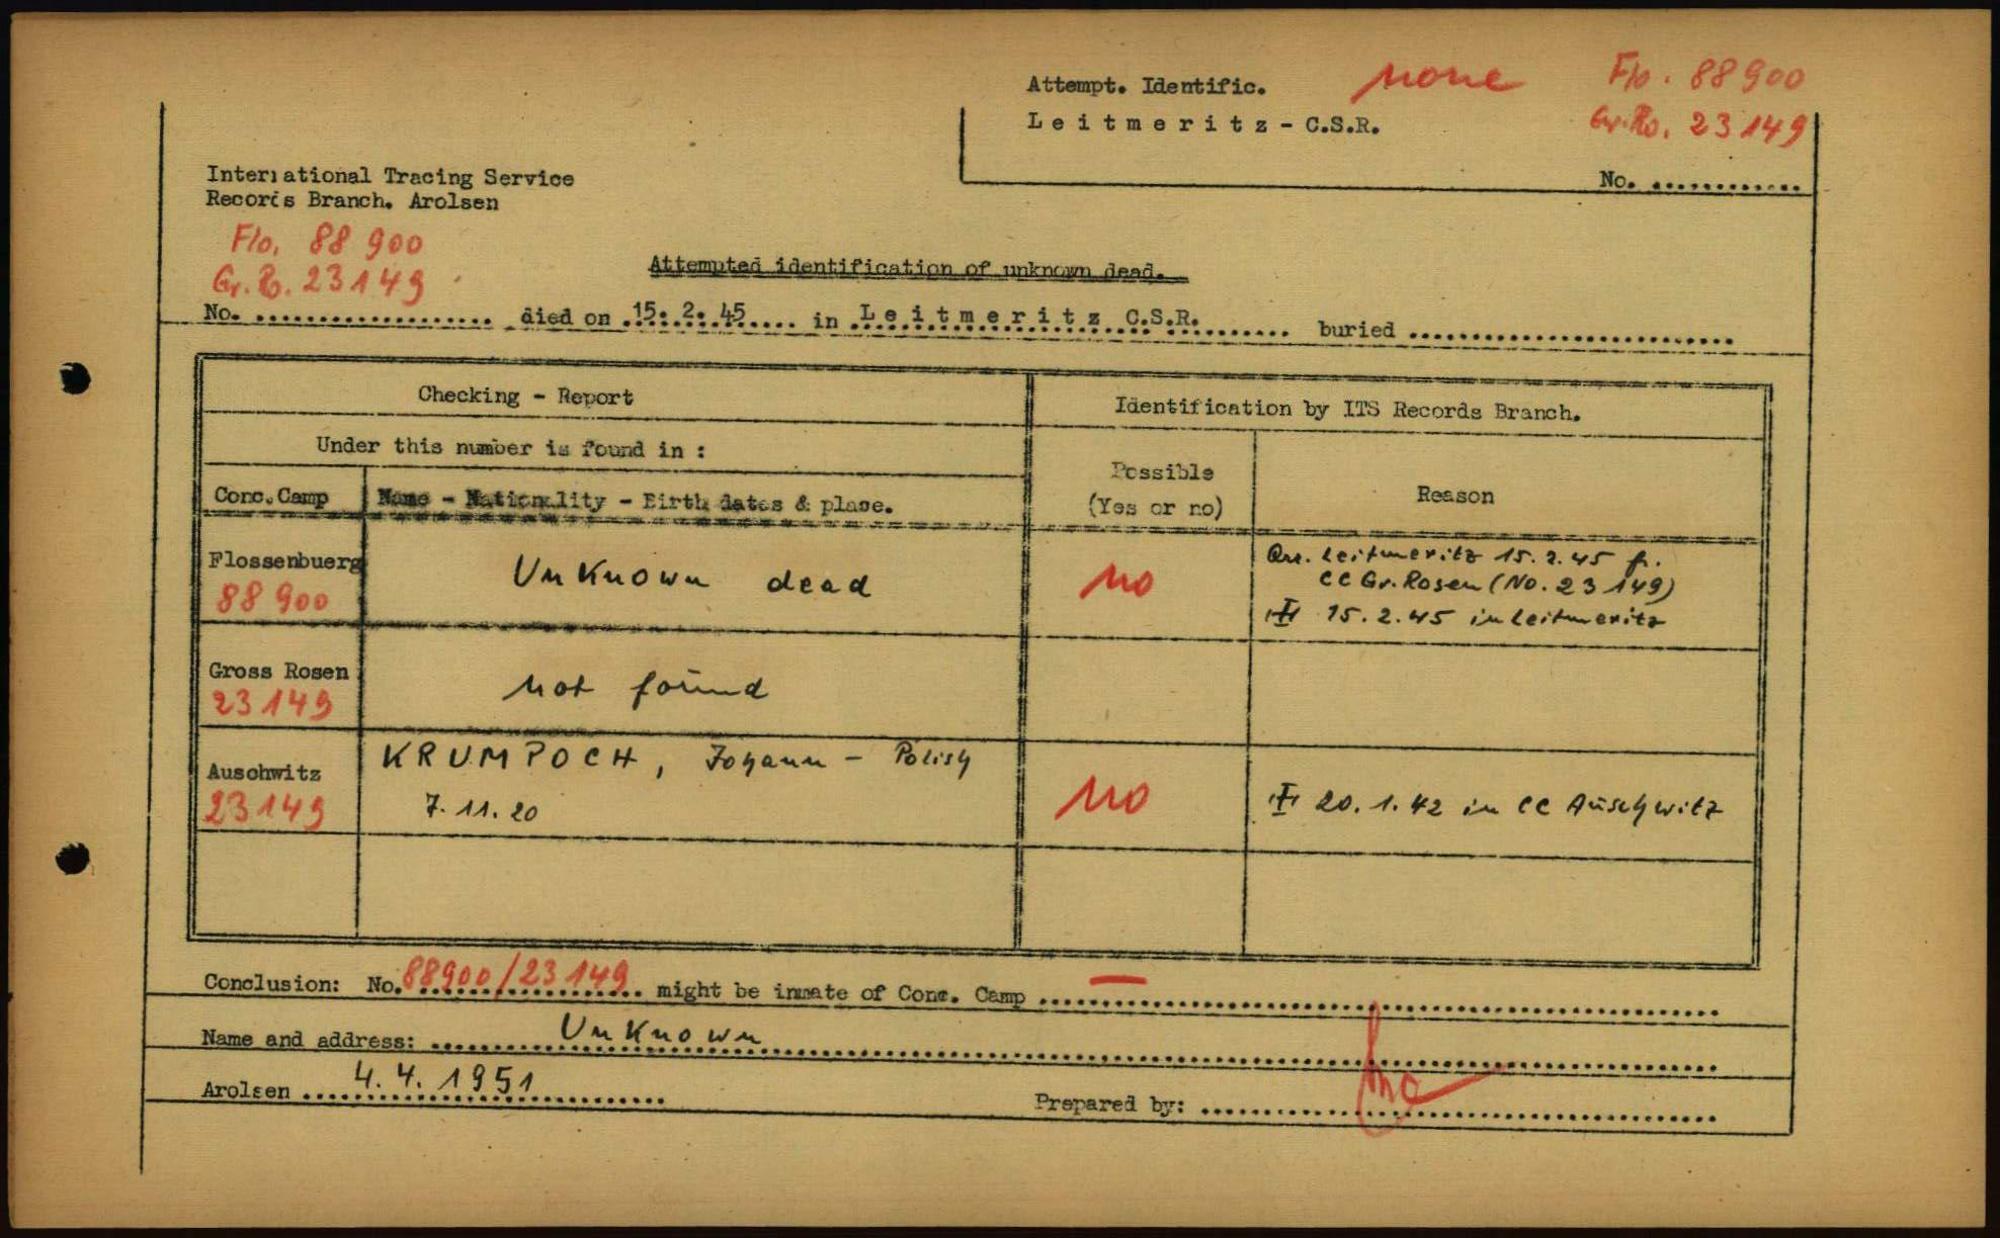 Attempt. Identific. none Flo. 88900
Leitmeritz - C.S.R. Gr.Ro. 23149
No. .............
International Tracing Service
Records Branch. Arolsen
Flo. 88 900
Gr. Ro. 23149
Attempted identification of unknown dead.
No. .................... died on 15. 2. 45 in Leitmeritz C.S.R. buried ..........................
Checking - Report
Identification by ITS Records Branch.
Under this number is found in :
Conc.Camp
Name - Nationality - Birth dates & place.
Possible
(Yes or no)
Reason
Flossenbuerg
88 900
Unknown dead
no
Arr. Leitmeritz 15.2.45 fr.
CC Gr. Rosen (No. 23149)
15.2.45 in Leitmeritz
Gross Rosen
23149
not found
Auschwitz
23149
KRUMPOCH, Johann - Polish
7. 11. 20
no
20. 1. 42 in CC Auschwitz
Conclusion: No. 88900/23149 might be inmate of Conc. Camp —
Name and address: Unknown
Arolsen 4. 4. 1951
Prepared by: